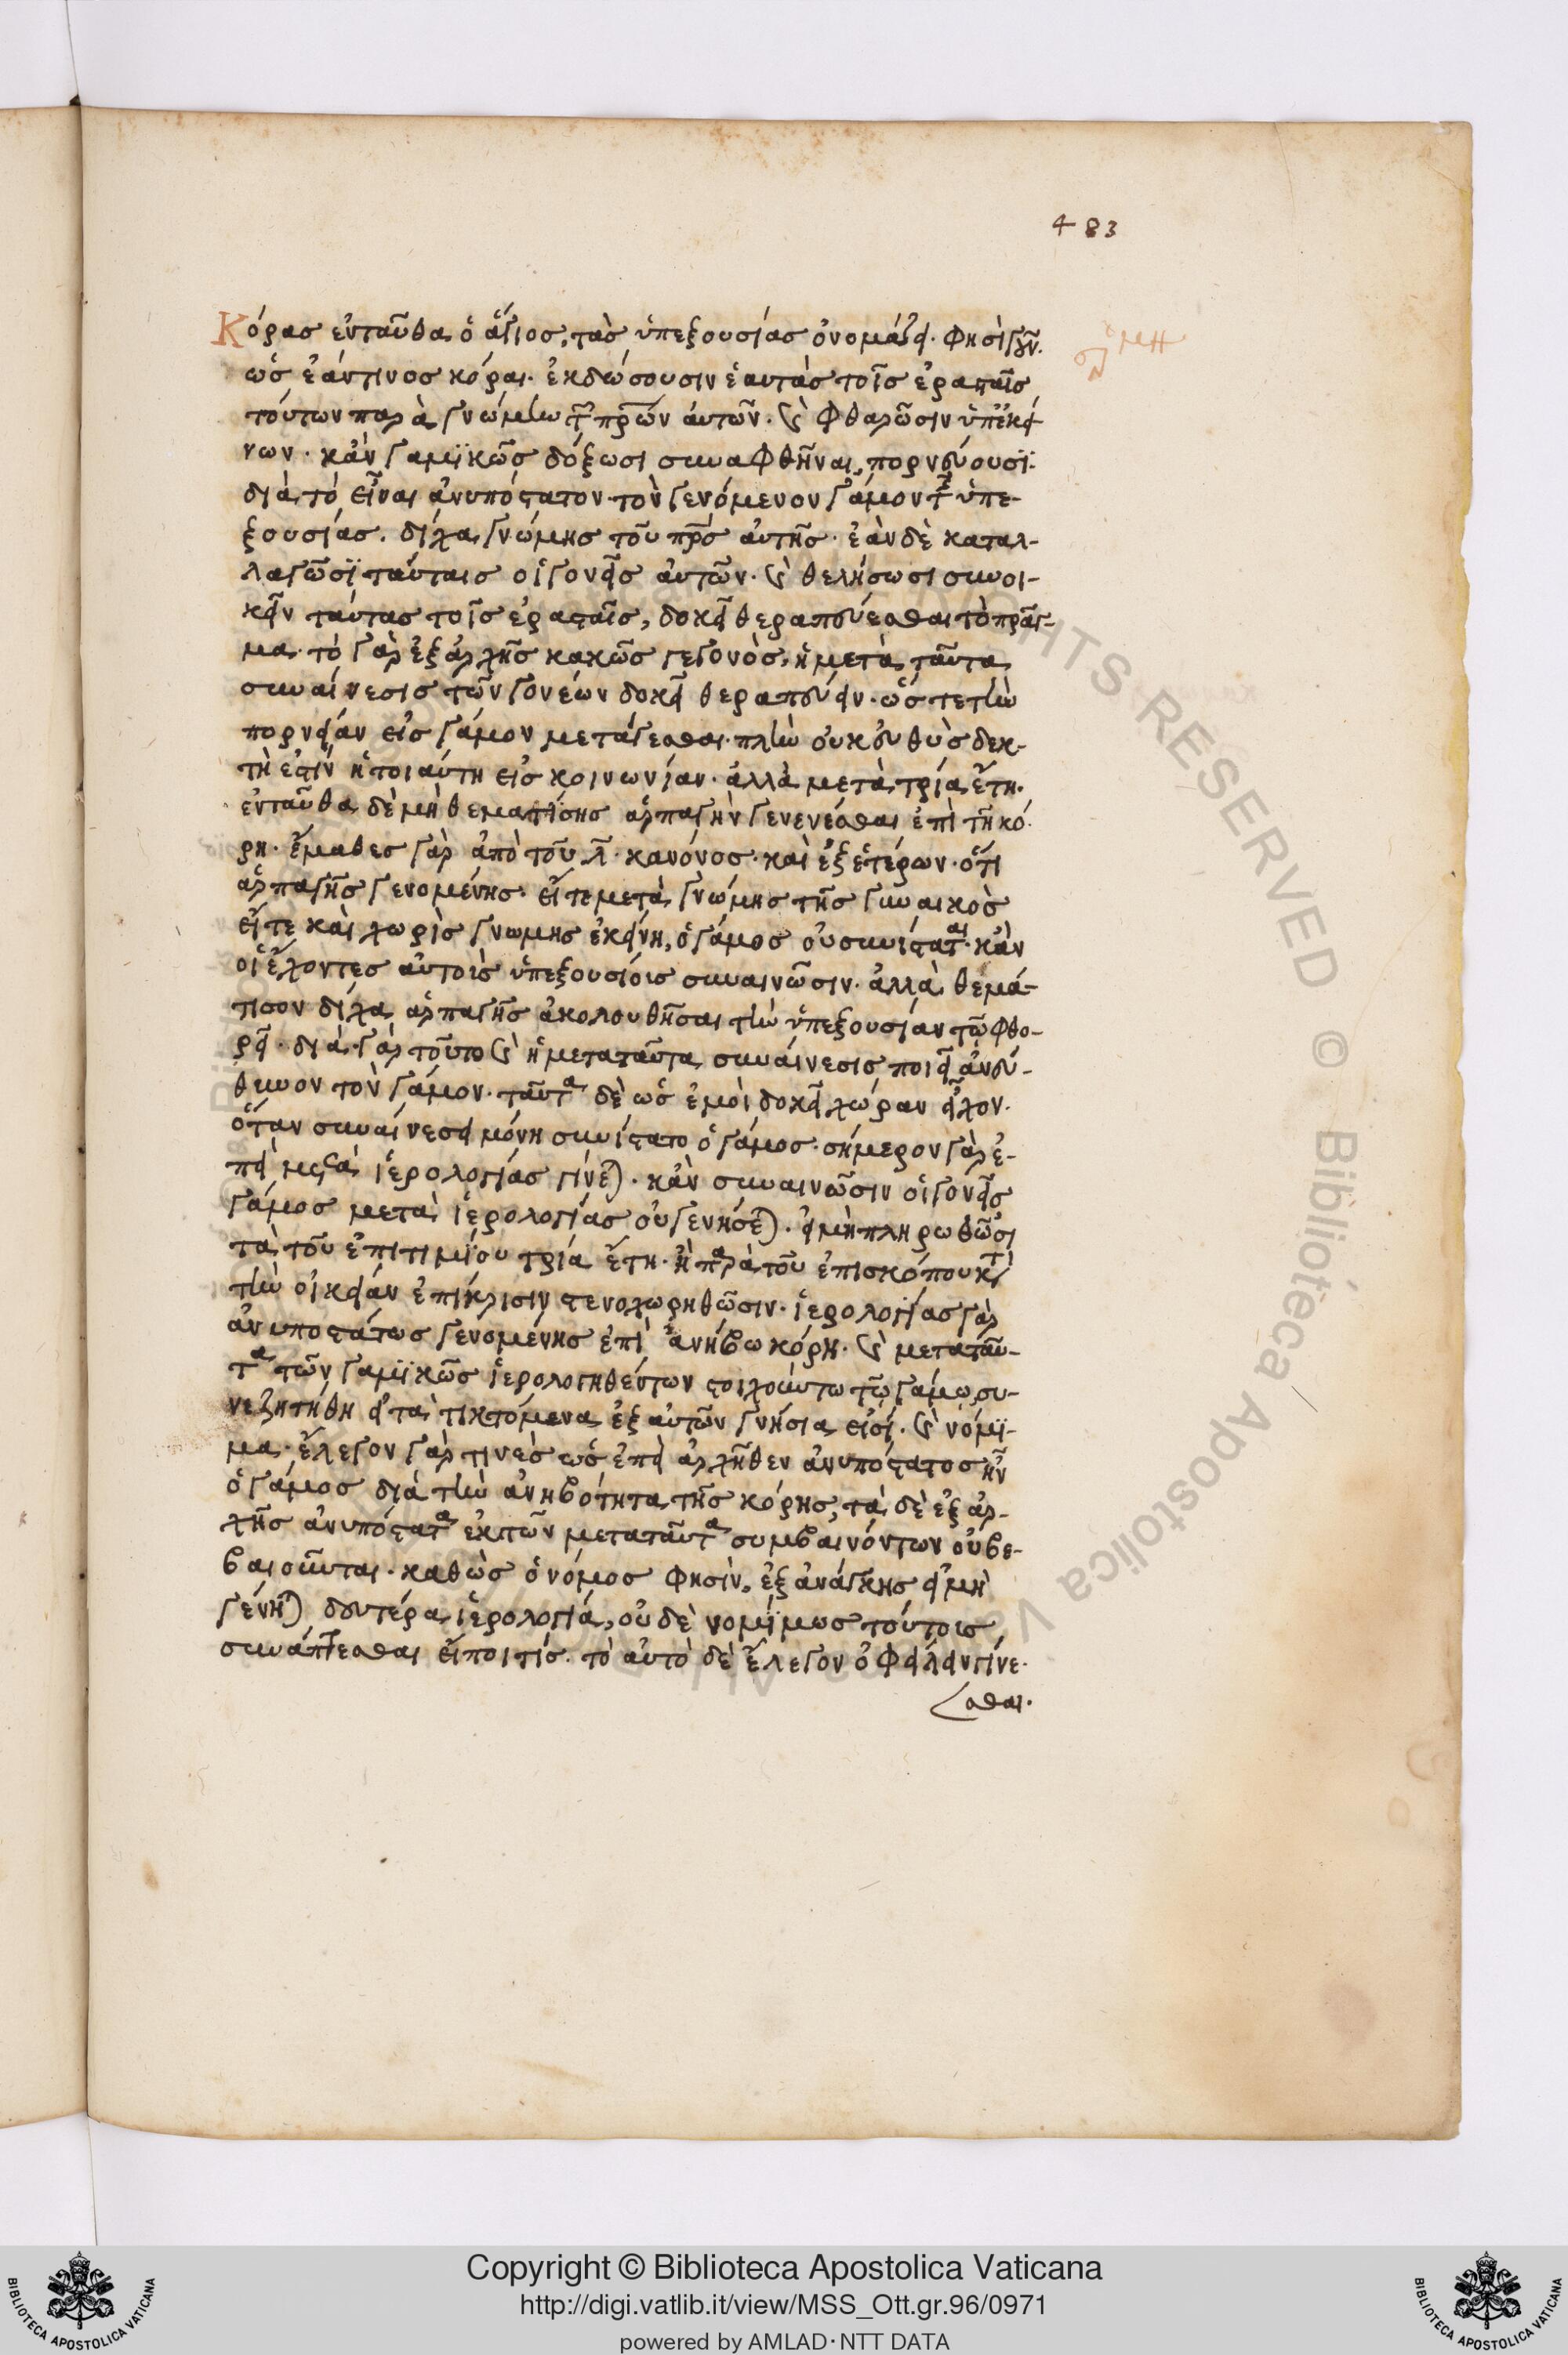 483
Κόρας ἐνταῦθα ὁ ἅγιος, τὰς ὑπεξουσίας ὀνομάζει. φησὶ γοῦν.
ὡς ἐάν τινος κόραι. ἐκδώσουσιν ἑαυτὰς τοῖς ἐρασταῖς
τούτων παρὰ γνώμην τ πρων ἀυτῶν. καὶ φθαρῶσιν ὑπἐκεί
νων. κἂν γαμϊκῶς δόξωσι συναφθῆναι, πορνεύουσϊ.
διὰ τὸ εἶναι ἀνυπόστατον τὸν γενόμενον γάμον τ ὑπε-
ξουσίας. δίχα γνώμης τοῦ πρς αὐτῆς. ἐὰν δὲ καταλ-
λαγῶσϊ ταύταις οἱ γονεῖς ἀυτῶν. καὶ θελήσωσι συνοι-
κεῖν ταύτας τοῖς ἐρασταῖς, δοκεῖ θεραπεύεσθαι τὸ πρᾶγ-
μα. τὸ γὰρ ἐξ ἀρχῆς κακῶς γεγονὸς, ἡ μετὰ ταῦτα
συναίνεσις τῶν γονέων δοκεῖ θεραπεύειν. ὥς τε τὴν
πορνείαν εἰς γάμον μετάγεσθαι. πλὴν οὐκ εὐθὺς δεκ-
τὴ ἐστὶν ἡ τοιαύτη εἰς κοινωνίαν. ἀλλὰ μετὰ τρία ἔτη.
ἐνταῦθα δὲ μὴ θεματίσης ἁρπαγὴν γενενέσθαι ἐπὶ τῆ κό-
ρη. ἔμαθες γὰρ ἀπὸ τοῦ λ. κανόνος. καὶ ἐξ ἑτέρων. ὅτι
ἁρπαγῆς γενομένης. εἴτε μετὰ γνώμης τῆς γυναικὸς
εἴτε καὶ χωρὶς γνωμης ἐκείνη, ὁ γάμος οὐ συνίσταται. κἂν
οἱ ἔχοντες αὐτοὶς ὑπεξουσίοις συναινῶσιν. ἀλλὰ θεμά-
τισον δίχα ἁρπαγῆς ἀκολουθῆσαι τὴν ὑπεξουσίαν τῷ φθο-
ρεῖ. διὰ γὰρ τοῦτο καὶ ἡ μεταταῦτα συναίνεσις ποιεῖ ἀνεύ-
θυνον τὸν γάμον. ταῦτα δὲ ὡς ἐμοὶ δοκεῖ χώραν εἶχον.
ὅταν συναινέσει μόνη συνίστατο ὁ γάμος. σήμερον γὰρ ἐ-
πεὶ μετὰ ἱερολογίας γίνεται. κἂν συναινῶσιν οἱ γονεῖς
γάμος μετὰ ἱερολογίας οὐ γενήσεται. εἰ μὴ πληρωθῶσι
τὰ τοῦ ἐπιτιμίου τρία ἔτη. ἢ παρὰ τοῦ ἐπισκόπου κτ
τὴν οἰκείαν ἐπίκρισιν στενοχωρηθῶσιν. ἱερολογίας γὰρ
ἀνυποστάτως γενομένης ἐπὶ ἀνήβω κόρη. καὶ μετα ταῦ-
τα τῶν γαμϊκῶς ἱερολογηθέντων στοιχούντω τῷ γάμῳ, συ-
νεζητήθη εἰ τὰ τικτόμενα ἐξ αὐτῶν γνήσια εἰσί. καὶ νόμϊ-
μα. ἔλεγον γάρ τινες ὡς ἐπεὶ ἀρχῆθεν ἀνυπόστατος ἦν
ὁ γάμος διὰ τὴν ἀνηβότητα τῆς κόρης, τὰ δὲ ἐξ ἀρ-
χῆς ἀνυπόστατα ἐκ τῶν μεταταῦτα συμβαινόντων οὐ βε-
βαιοῦνται. καθὼς ὁ νόμος φησὶν, ἐξ ἀνάγκης εἰ μὴ
γένηται δευτέρα ἱερολογία, οὐδὲ νομίμως τούτοις
συνάπτεσθαι εἴποι τίς. τὸ αὐτὸ δὲ ἔλεγον ὀφείλειν γίνε-
σθαι.
Copyright © Biblioteca Apostolica Vaticana
http://digi.vatlib.it/view/MSS_Ott.gr.96/0971
powered by AMLAD·NTT DATA
BIBLIOTECA APOSTOLICA VATICANA
BIBLIOTECA APOSTOLICA VATICANA